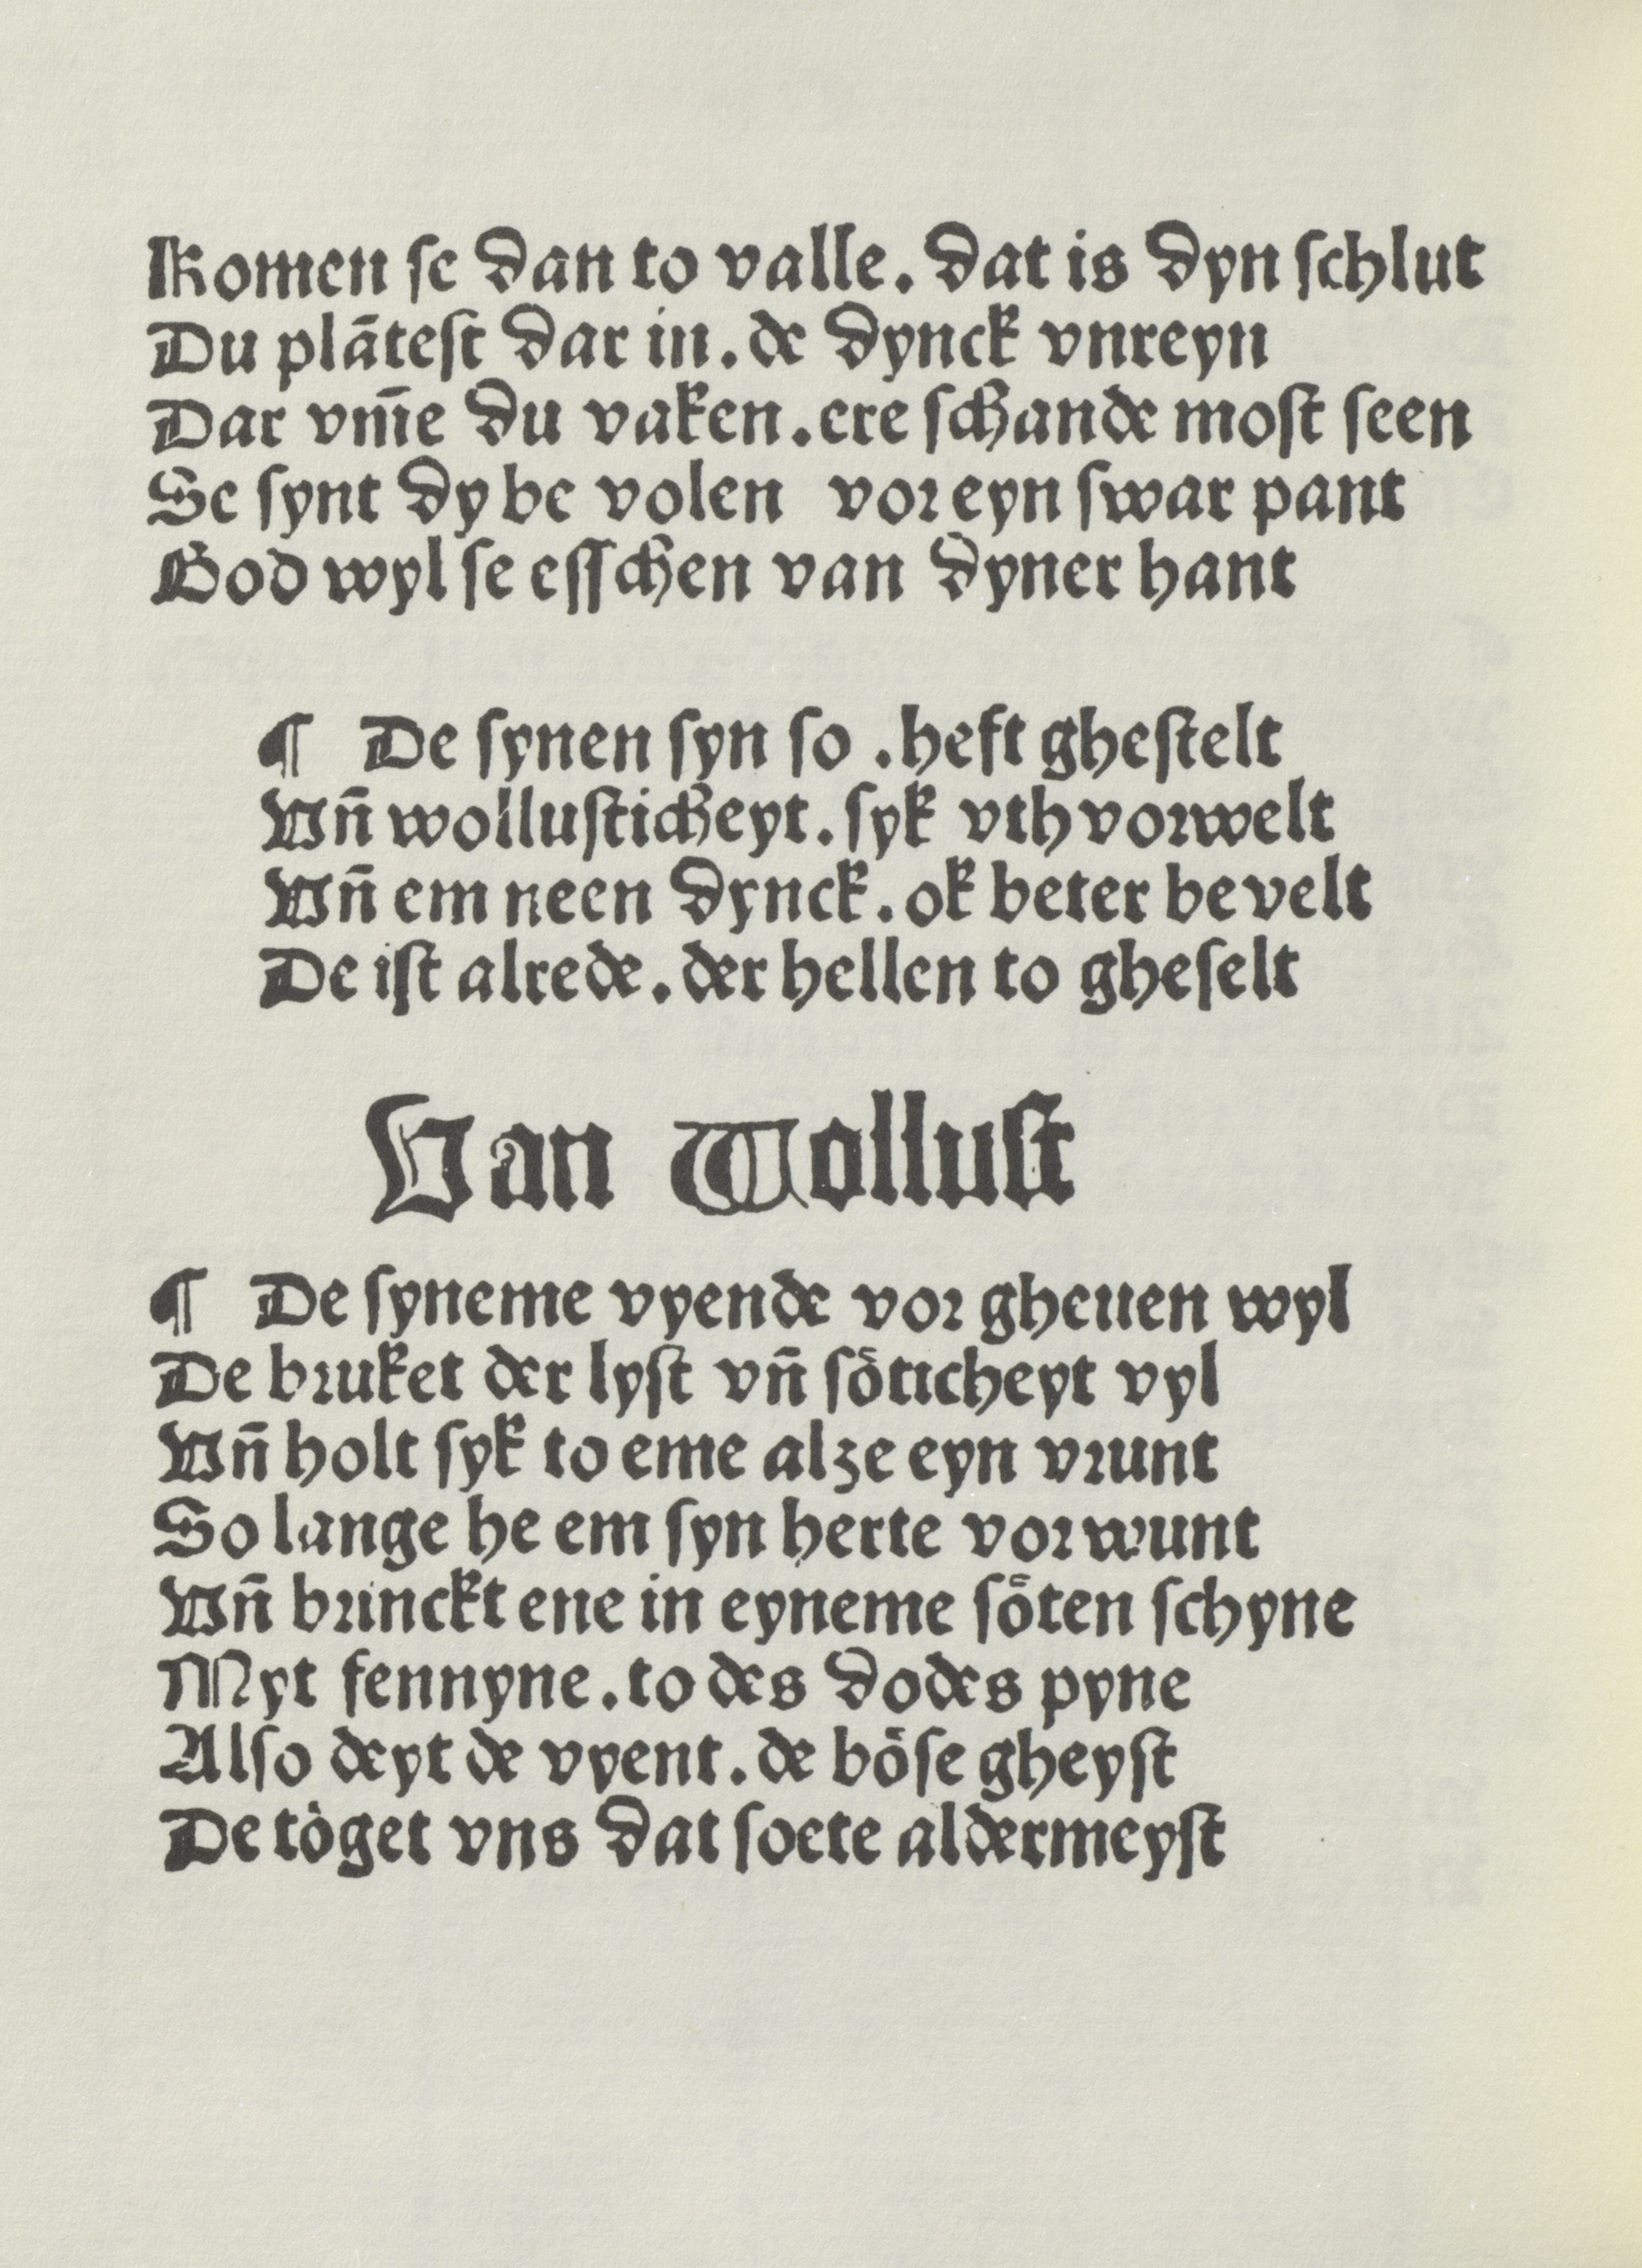 Komen se dan to valle. dat is dyn schlut
Du plātest dar in. de dynck vnreyn
Dar vm̄e du vaken. ere schande most seen
Se synt dy be volen vor eyn swar pant
God wyl se esschen van dyner hant
¶ De synen syn so . heft ghestelt
Vn̄ wollusticheyt. syk vth vorwelt
Vn̄ em neen dynck. ok beter be velt
De ist alrede. der hellen to gheselt
Van Wollust
¶ De syneme vyende vor gheuen wyl
De bruket der lyst vn̄ soͤticheyt vyl
Vn̄ holt syk to eme alze eyn vrunt
So lange he em syn herte vor wunt
Vn̄ brinckt ene in eyneme soͤten schyne
Myt fennyne. to des dodes pyne
Also deyt de vyent. de boͤse gheyst
De toͤget vns dat soete aldermeyst